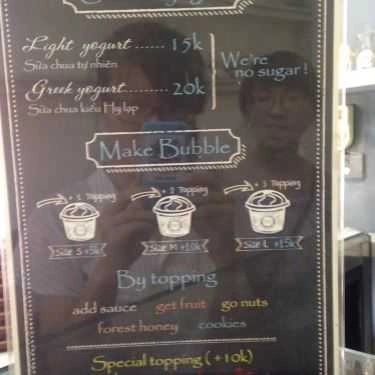 Light yogurt....... 15k
Sữa chua tự nhiên
Greek yogurt....... 20k
Sữa chua kiểu Hy lạp
We're
no sugar!
Make Bubble
+ 1 Topping
+ 2 Topping
+ 3 Topping
Size S +5k
Size M +10k
Size L +15k
By topping
add sauce get fruit go nuts
forest honey cookies
Special topping ( +10k)